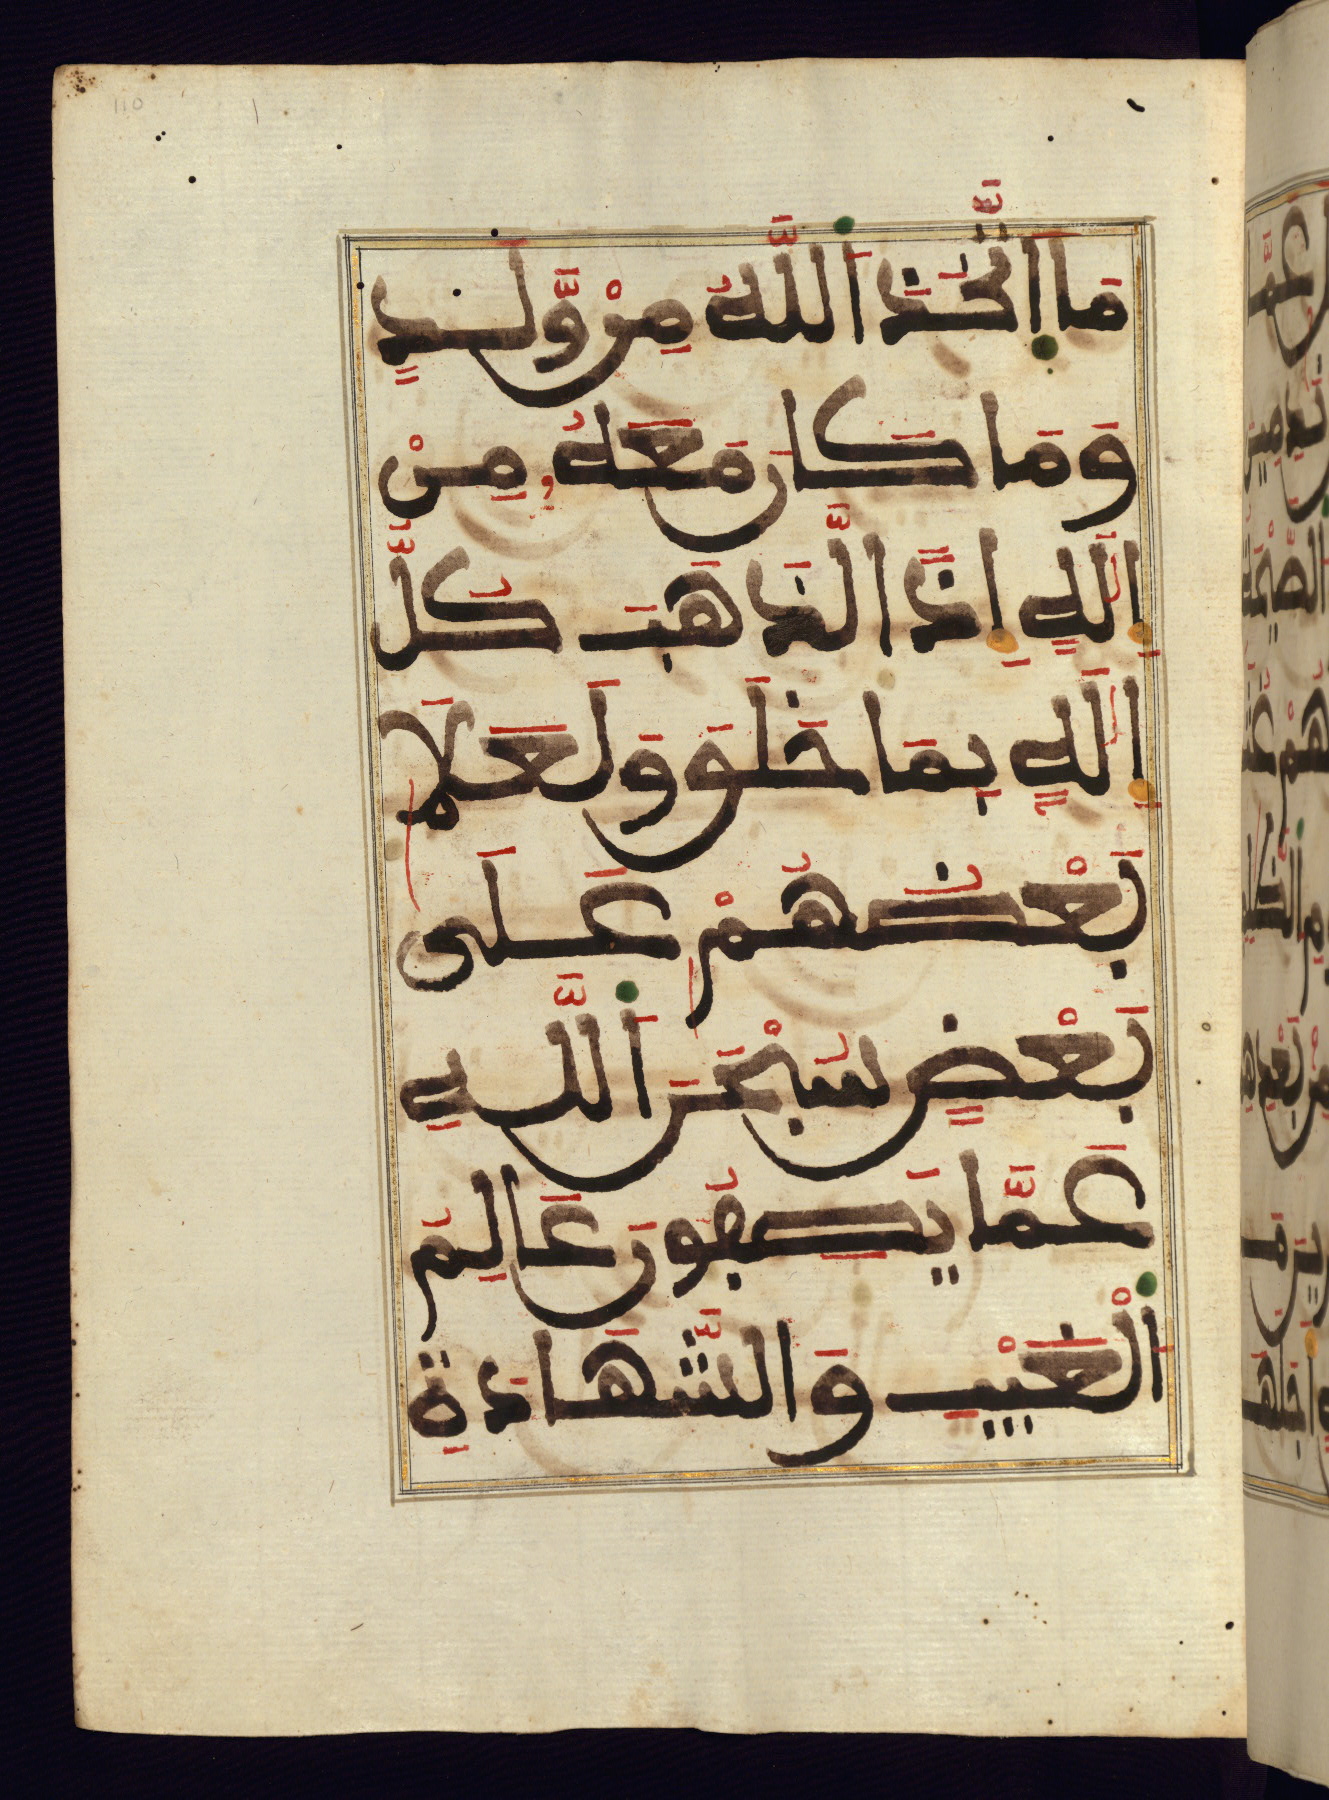 110
مَا اَتَّخَذَ اَللَّهُ مِنْ وَّلَدٍ
وَمَا كَانَ مَعَهُ مِنْ
اِلَٰهٍ اِذاً الَّذَهَبَ كُلُّ
اِلَٰهٍ بِمَا خَلَقَ وَلَعَلَا
بَعْضُهُمْ عَلَى
بَعْضٍ سُبْحَنَ اَللَّهِ
عَمَّا يَصِفُونَ عَالِمُ
اَلْغَيْبِ وَالشَّهَادَةِ